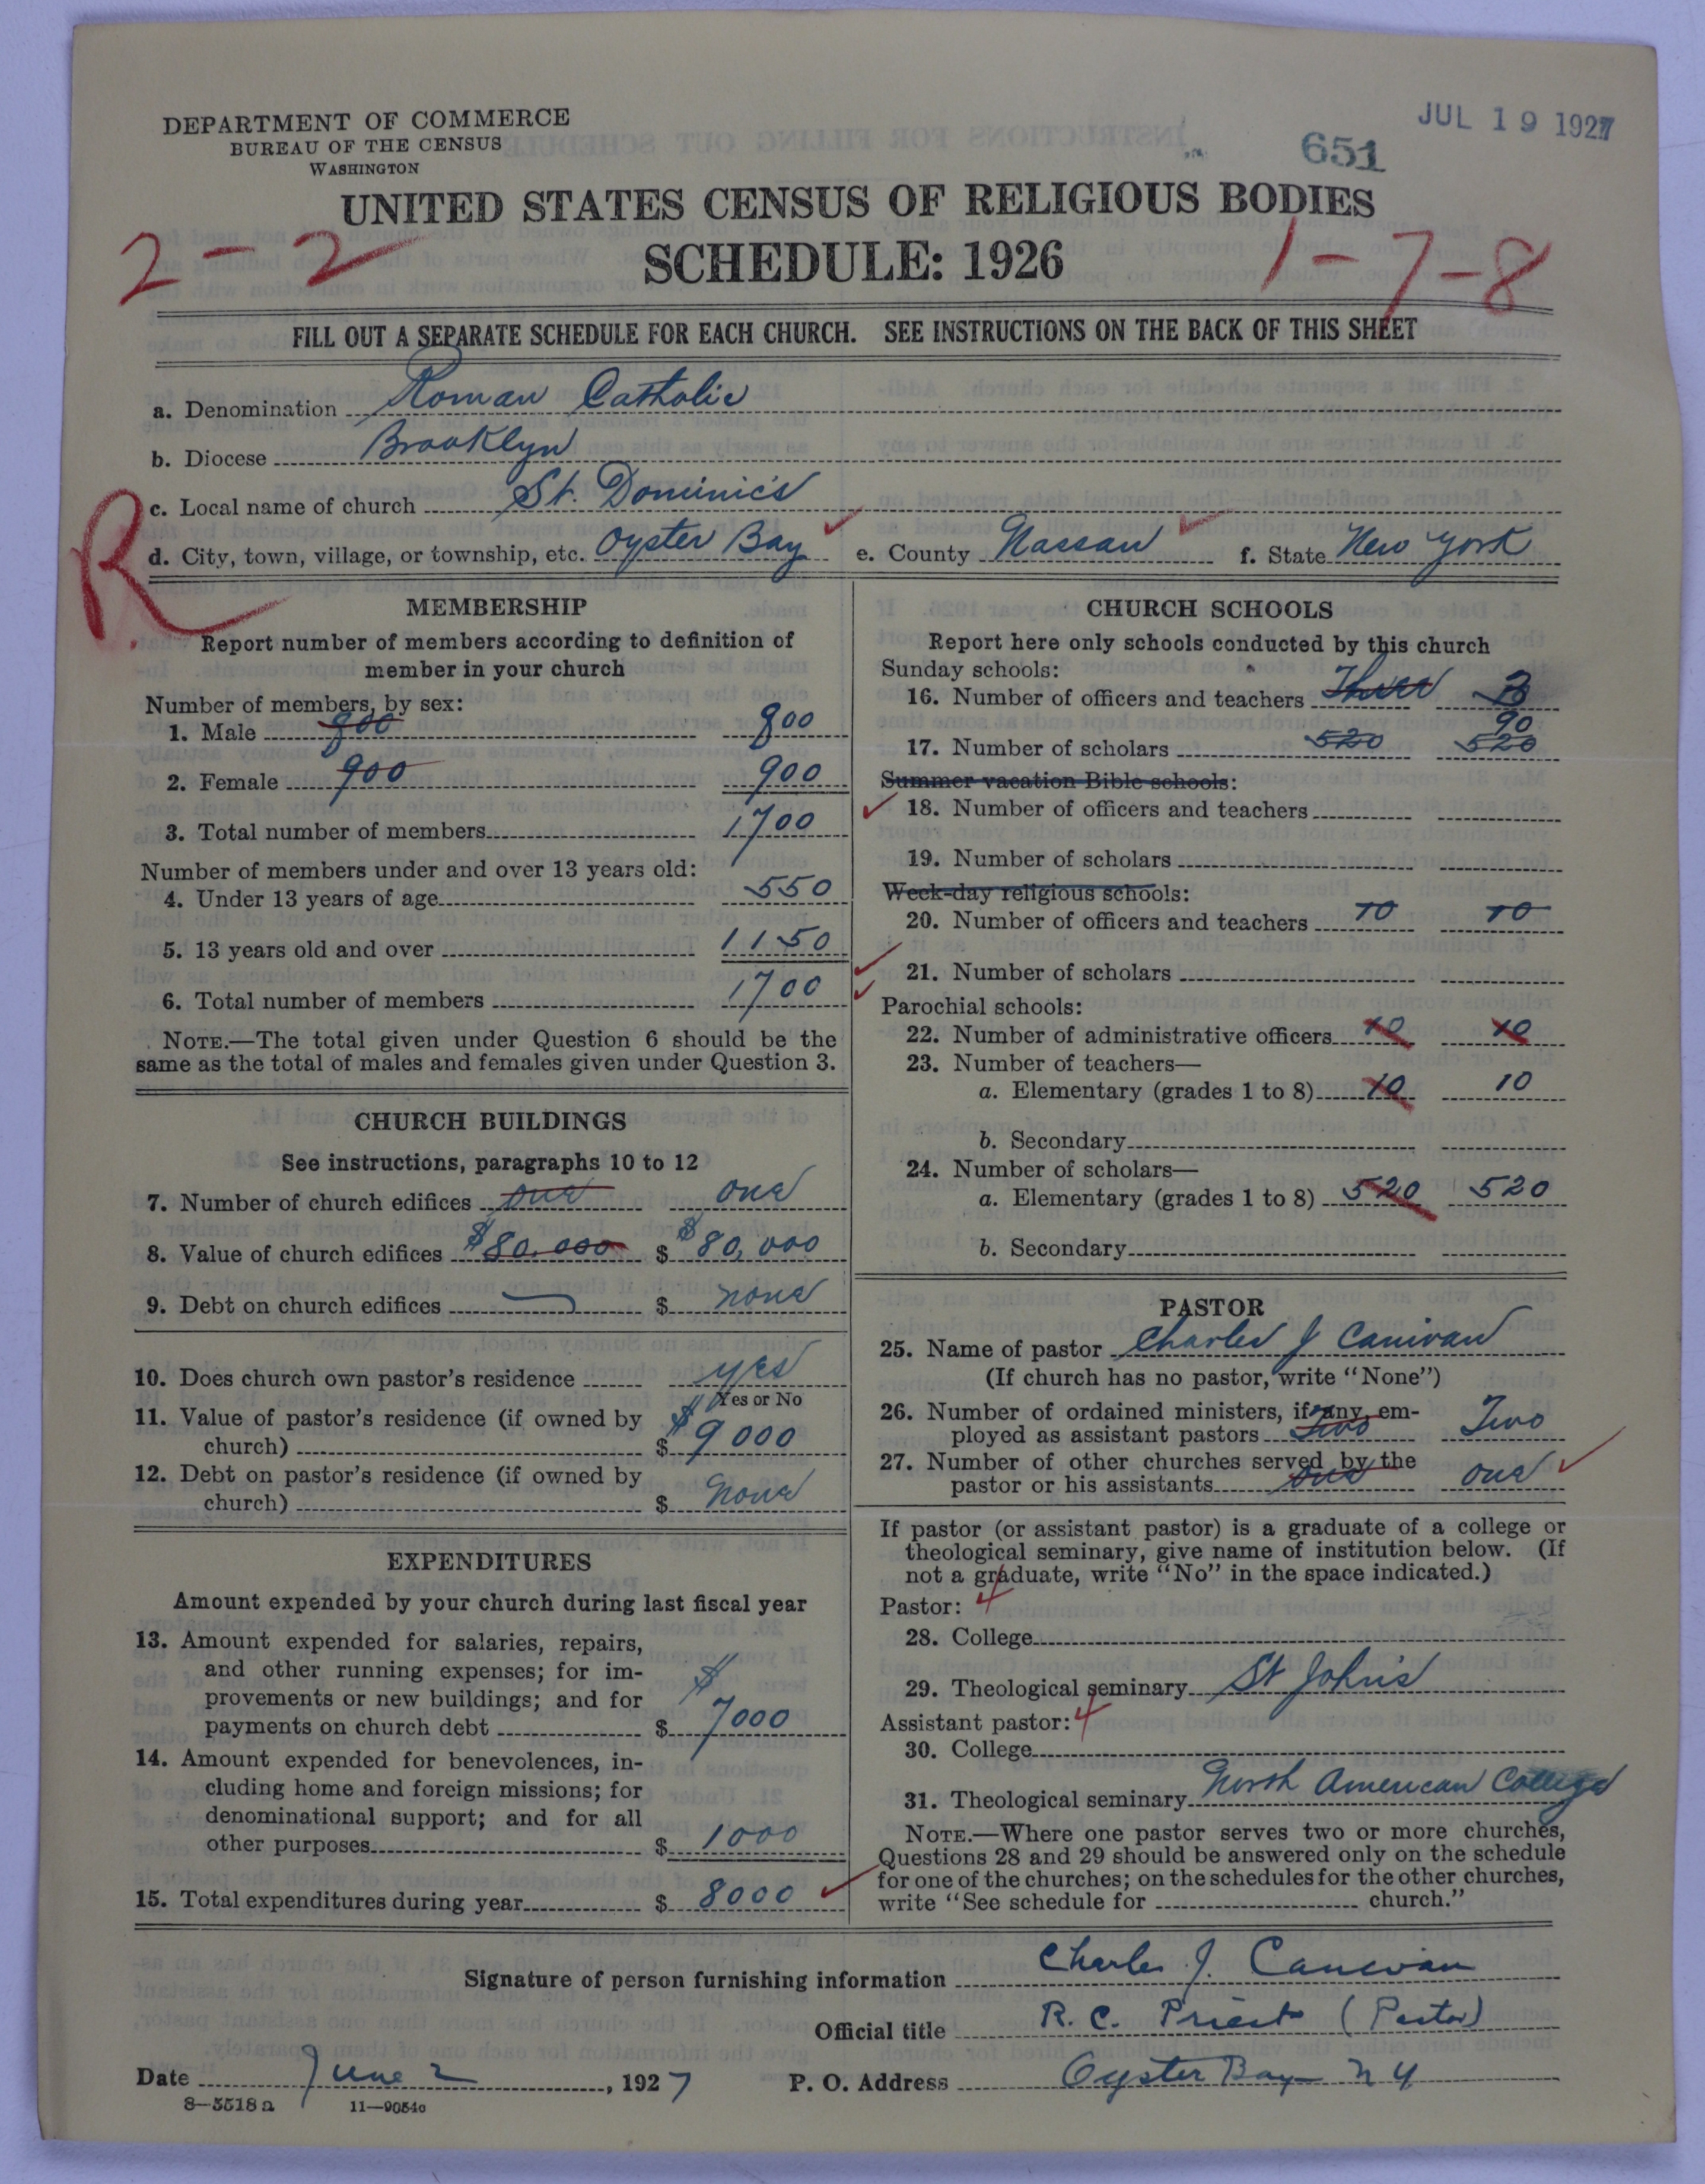 JUL 19 1927
651
DEPARTMENT OF COMMERCE
BUREAU OF THE CENSUS
WASHINGTON
UNITED STATES CENSUS OF RELIGIOUS BODIES
SCHEDULE: 1926
2-2
1-7-8
FILL OUT A SEPARATE SCHEDULE FOR EACH CHURCH. SEE INSTRUCTIONS ON THE BACK OF THIS SHEET
a. Denomination Roman Catholic
b. Diocese Brooklyn
c. Local name of church St. Dominic's
R
d. City, town, village, or township, etc. Oyster Bay e. County Nassau f. State New York
MEMBERSHIP
Report number of members according to definition of
member in your church
Number of members, by sex:
1. Male 800 800
2. Female 900 900
3. Total number of members 1700
Number of members under and over 13 years old:
4. Under 13 years of age 550
5. 13 years old and over 1150
6. Total number of members 1700
NOTE.—The total given under Question 6 should be the
same as the total of males and females given under Question 3.
CHURCH BUILDINGS
See instructions, paragraphs 10 to 12
7. Number of church edifices one one
8. Value of church edifices $80,000 $ $80,000
9. Debt on church edifices $ none
10. Does church own pastor's residence yes
Yes or No
11. Value of pastor's residence (if owned by
church) $ $9000
12. Debt on pastor's residence (if owned by
church) $ none
EXPENDITURES
Amount expended by your church during last fiscal year
13. Amount expended for salaries, repairs,
and other running expenses; for im-
provements or new buildings; and for
payments on church debt $ $7000
14. Amount expended for benevolences, in-
cluding home and foreign missions; for
denominational support; and for all
other purposes $ 1000
15. Total expenditures during year $ 8000
CHURCH SCHOOLS
Report here only schools conducted by this church
Sunday schools:
16. Number of officers and teachers Three 3
90
17. Number of scholars 520 520
Summer vacation Bible schools:
18. Number of officers and teachers
19. Number of scholars
Week-day religious schools:
20. Number of officers and teachers 10 10
21. Number of scholars
Parochial schools:
22. Number of administrative officers 10 10
23. Number of teachers—
a. Elementary (grades 1 to 8) 10 10
b. Secondary
24. Number of scholars—
a. Elementary (grades 1 to 8) 520 520
b. Secondary
PASTOR
25. Name of pastor Charles J Canivan
(If church has no pastor, write "None")
26. Number of ordained ministers, if any, em-
ployed as assistant pastors Two Two
27. Number of other churches served by the
pastor or his assistants one one
If pastor (or assistant pastor) is a graduate of a college or
theological seminary, give name of institution below. (If
not a graduate, write "No" in the space indicated.)
Pastor: 4
28. College
29. Theological seminary St John's
Assistant pastor: 4
30. College
31. Theological seminary North American College
NOTE.—Where one pastor serves two or more churches,
Questions 28 and 29 should be answered only on the schedule
for one of the churches; on the schedules for the other churches,
write "See schedule for church."
Signature of person furnishing information Charles J. Canivan
Official title R. C. Priest (Pastor)
Date June 2, 1927 P. O. Address Oyster Bay N Y
8—5518a 11—9054c